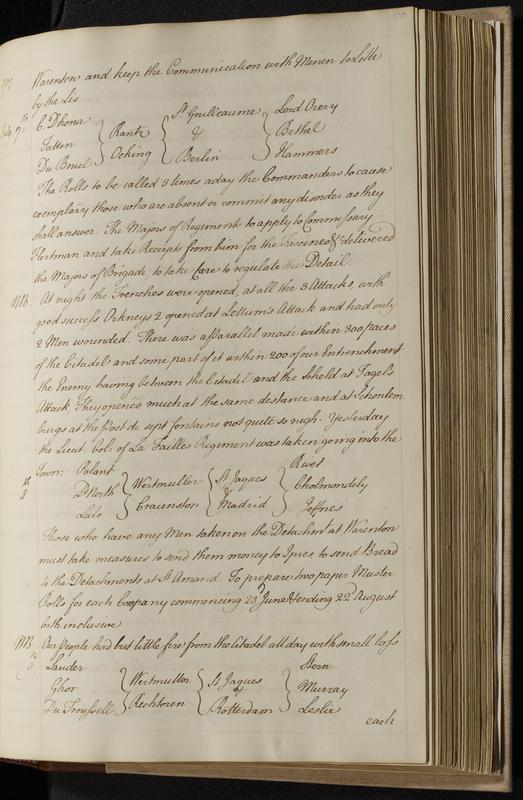 1709
Warenton and keep the Communication with Menin to Lille
by the Lis
July 7th C. Dhona } Rantz } St. Guilleaume } Lord Orery
Tatten } Ocking } & } Bethel
Du Bruil } Berlin } Hammers
The Rolls to be called 3 times a day the Commanders to cause
exemplary those who are absent or commit any disorder as they
shall answer. The Majors of Regiments to apply to Commissary
Hortman and take Receipts from him for the Fascines &c delivered
the Majors of Brigade to take Care to regulate the Detail.
NB. At night the Trenches were opened, at all the 3 Attacks, with
good success Orkneys 2 opened at Lottum's Attack and had only
2 Men wounded. There was a Parallel made within 300 paces
of the Citadel and some part of it within 200 of our Entrenchment
the Enemy having between the Citadel and the Scheld at Fagel's
Attack, They opened much at the same distance and at Schoulem
burgs at the Post de sept fontains not quite so nigh. Yesterday
the Lieut. Col: of La Failles Regiment was taken going into the
Town:
8 Palant } Wertmuller } St Jaques } Rivet
D: North } Cravenston } & } Cholmondely
Lalo } Madrid } Jeffries
Those who have any Men taken on the Detachmt. at Warenton
must take measures to send them money to Ipres, to send Bread
to the Detachments at St Amand. To prepare two paper Muster
Rolls for each Company commencing 23d June & ending 22d August
both inclusive
NB Our People had but little fire from the Citadel all day with small loss
9 Lauder } Wertmuller } St Jaques } Stern
Ghor } Rechteren } & } Murray
Du Troussell } Rotterdam } Leslie
each